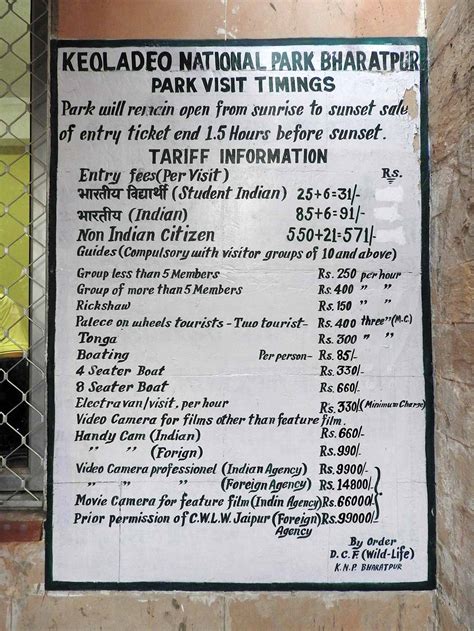 KEOLADEO NATIONAL PARK BHARATPUR
PARK VISIT TIMINGS
Park will remain open from sunrise to sunset sale
of entry ticket end 1.5 Hours before sunset.
TARIFF INFORMATION
Entry fees(Per Visit) Rs.
भारतीय विद्यार्थी (Student Indian) 25+6=31/-
भारतीय (Indian) 85+6=91/-
Non Indian Citizen 550+21=571/-
Guides (Compulsory with visitor groups of 10 and above)
Group less than 5 Members Rs. 250 per hour
Group of more than 5 Members Rs. 400 " "
Rickshaw Rs. 150 " "
Palece on wheels tourists - Two tourist- Rs. 400 three" (M.C.)
Tonga Rs. 300 " "
Boating Per person- Rs. 85/-
4 Seater Boat Rs. 330/-
8 Seater Boat Rs. 660/-
Electravan/visit, per hour Rs. 330/- (Minimum Charge)
Video Camera for films other than feature film.
Handy Cam (Indian) Rs. 660/-
" " (Forign) Rs. 990/-
Video Camera professionel (Indian Agency) Rs. 9900/-
" " " (Foreign Agency) Rs. 14800/-
Movie Camera for feature film (Indin Agency) Rs. 66000/-
Prior permission of C.W.L.W. Jaipur (Foreign Agency) Rs. 99000/-
By Order
D.C.F. (Wild-Life)
K.N.P BHARATPUR